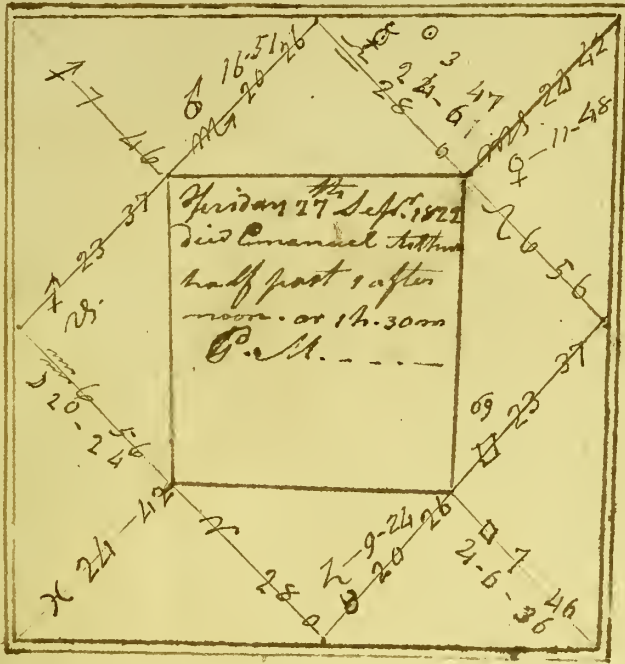 ♐ 7 46
♂ 16-51
♏ 20 26
♎ 28 0
☉ 3 47
24-6
♍ 23 42
♀ 11-48
♌ 6 56
♐ 23 37
♑
Friday 27th Sept. 1822
died Emanuel
half past 1 after
noon. or 1h.30m
P.M.
♋
♊ 23 37
♒ 6 56
☽ 20-24
♓ 24-42
♈ 28 0
♄ 9-24
♉ 20 26
♊ 7 46
♃ 6-36